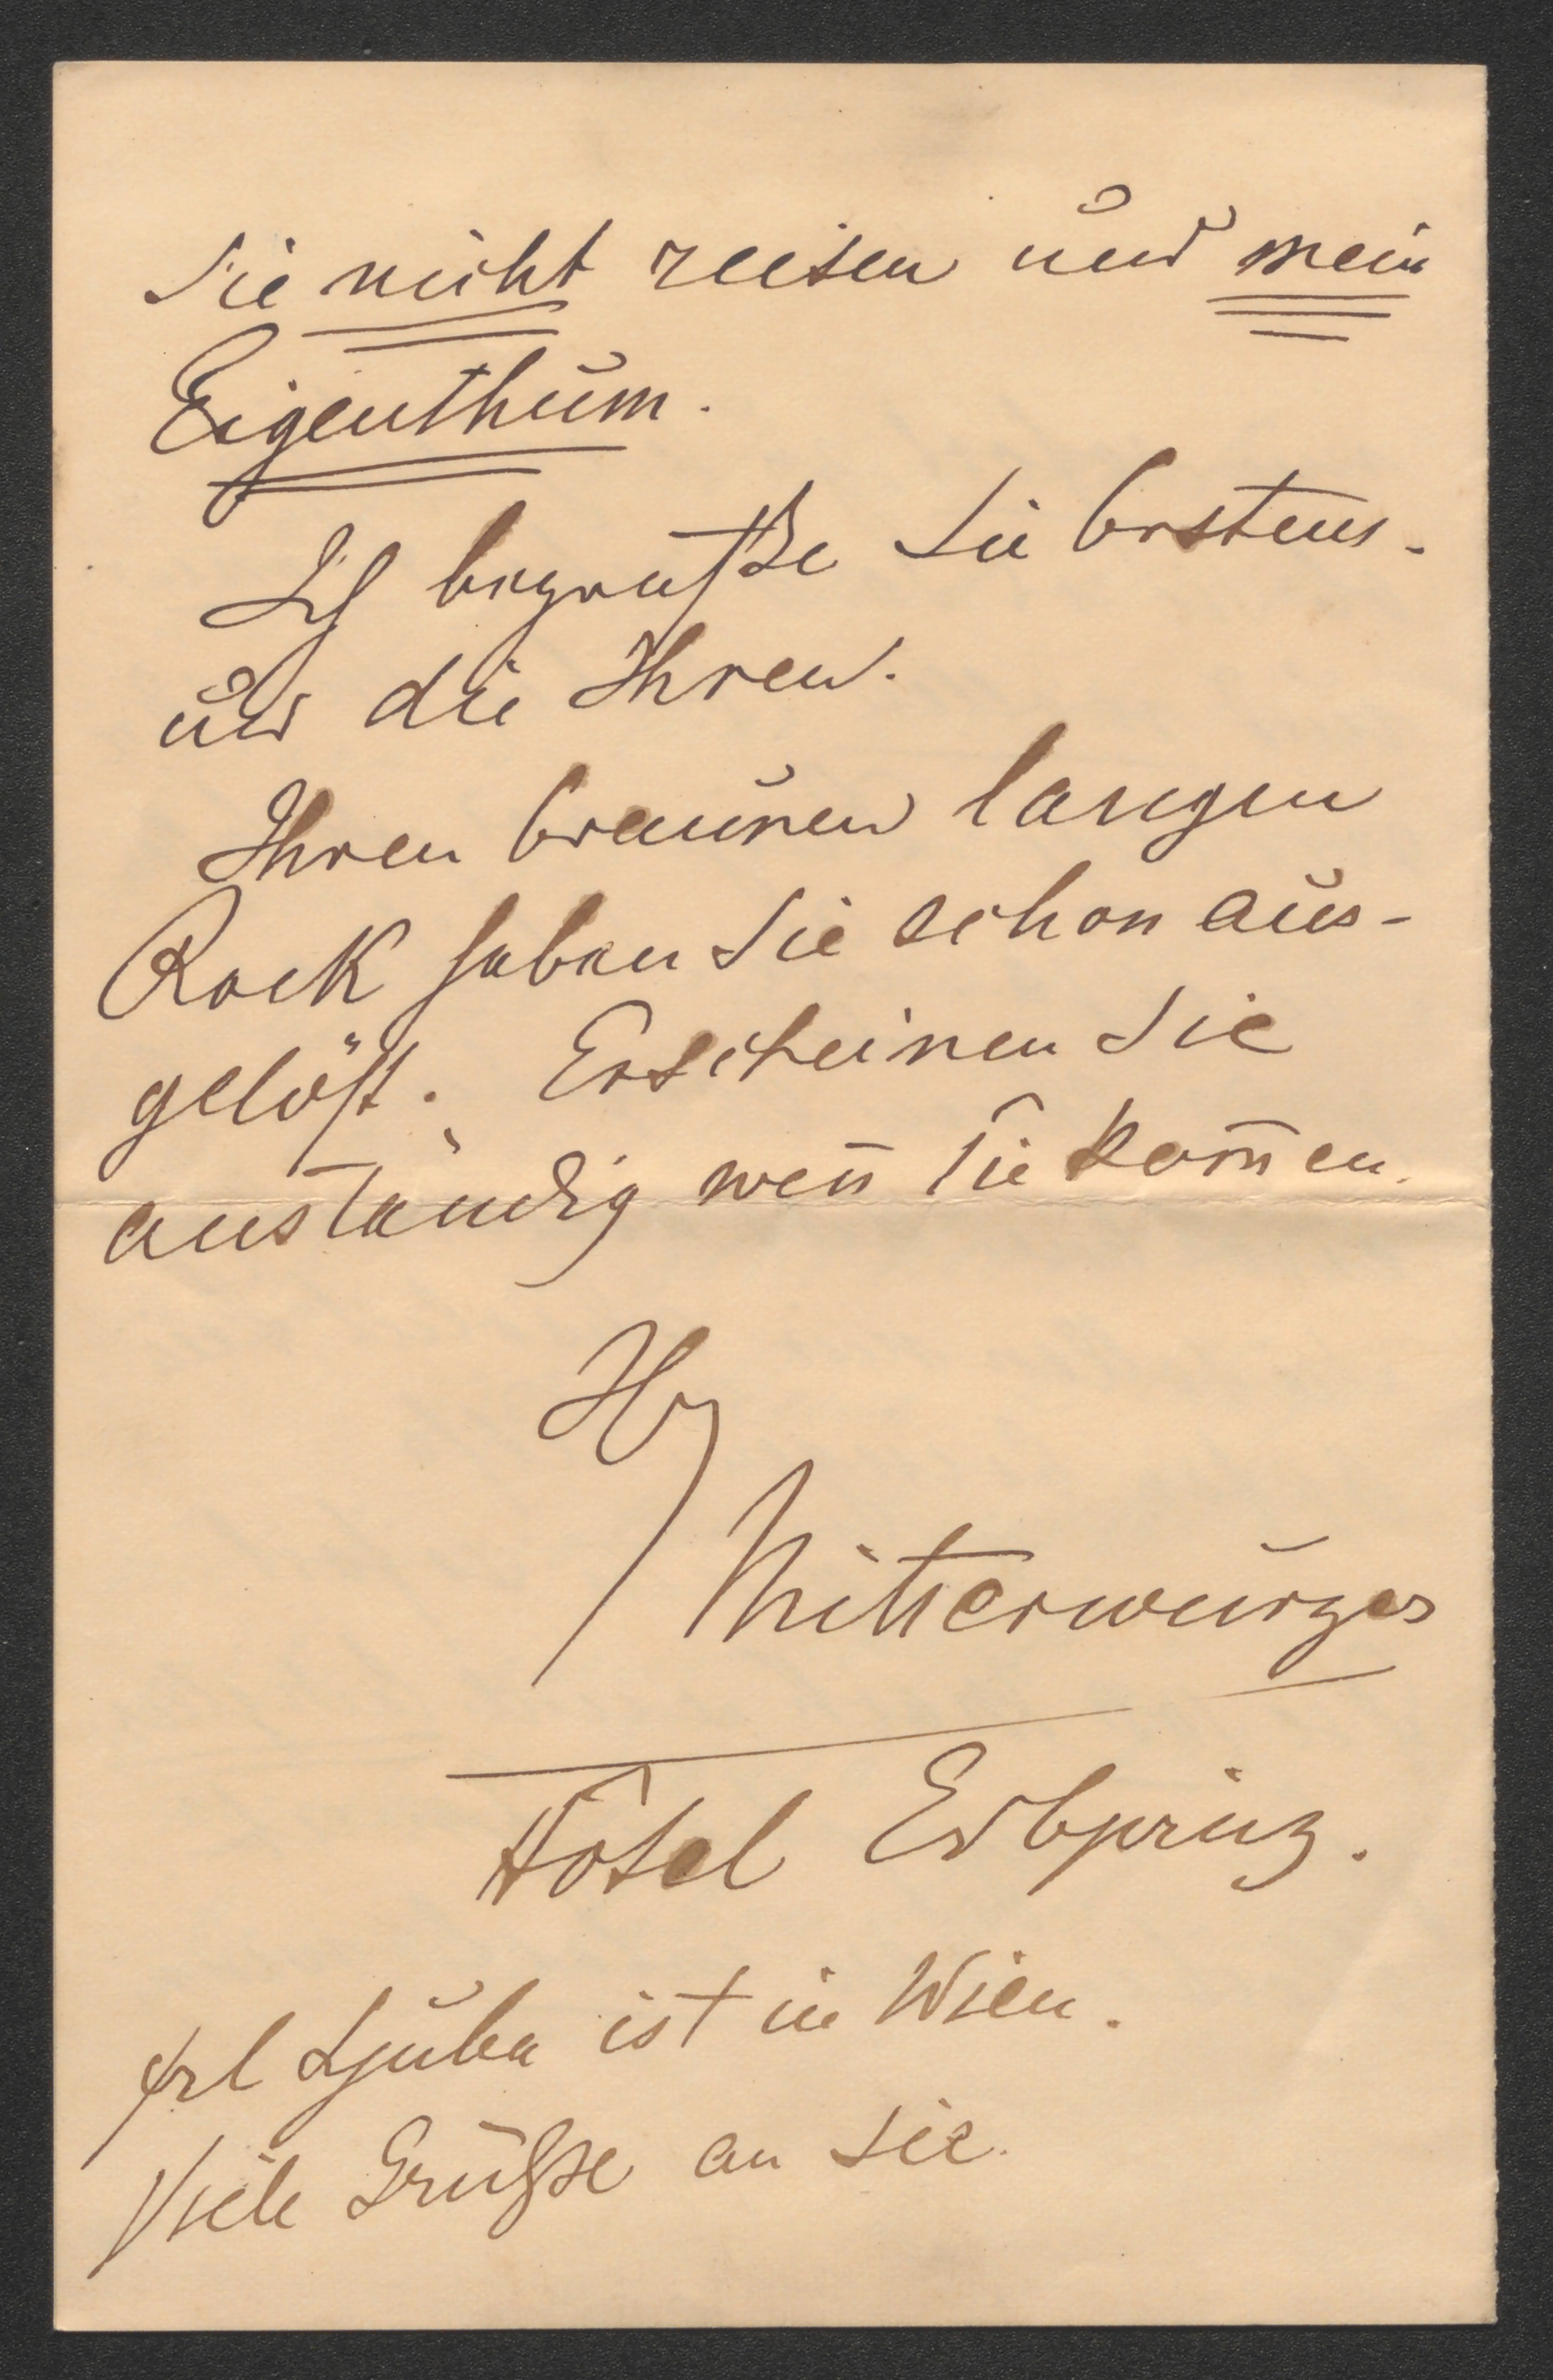 Sie nicht reisen und mein
Eigenthum.
Ich begruße Sie bestens.
und die Ihren.
Ihren braunen langen
Rock haben Sie schon aus-
gelöst. Erscheinen Sie
anständig wen̄ Sie kom̄en.
Ihr
Mitterwurzer
Hôtel Erbprinz.
Frl Ljuba ist in Wien.
Viele Grüße an Sie.